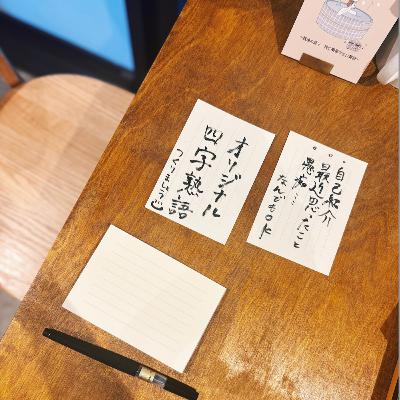 自己紹介
最近思ったこと
愚痴…
なんでもOK
オリジナル
四字熟語
つくりましょう